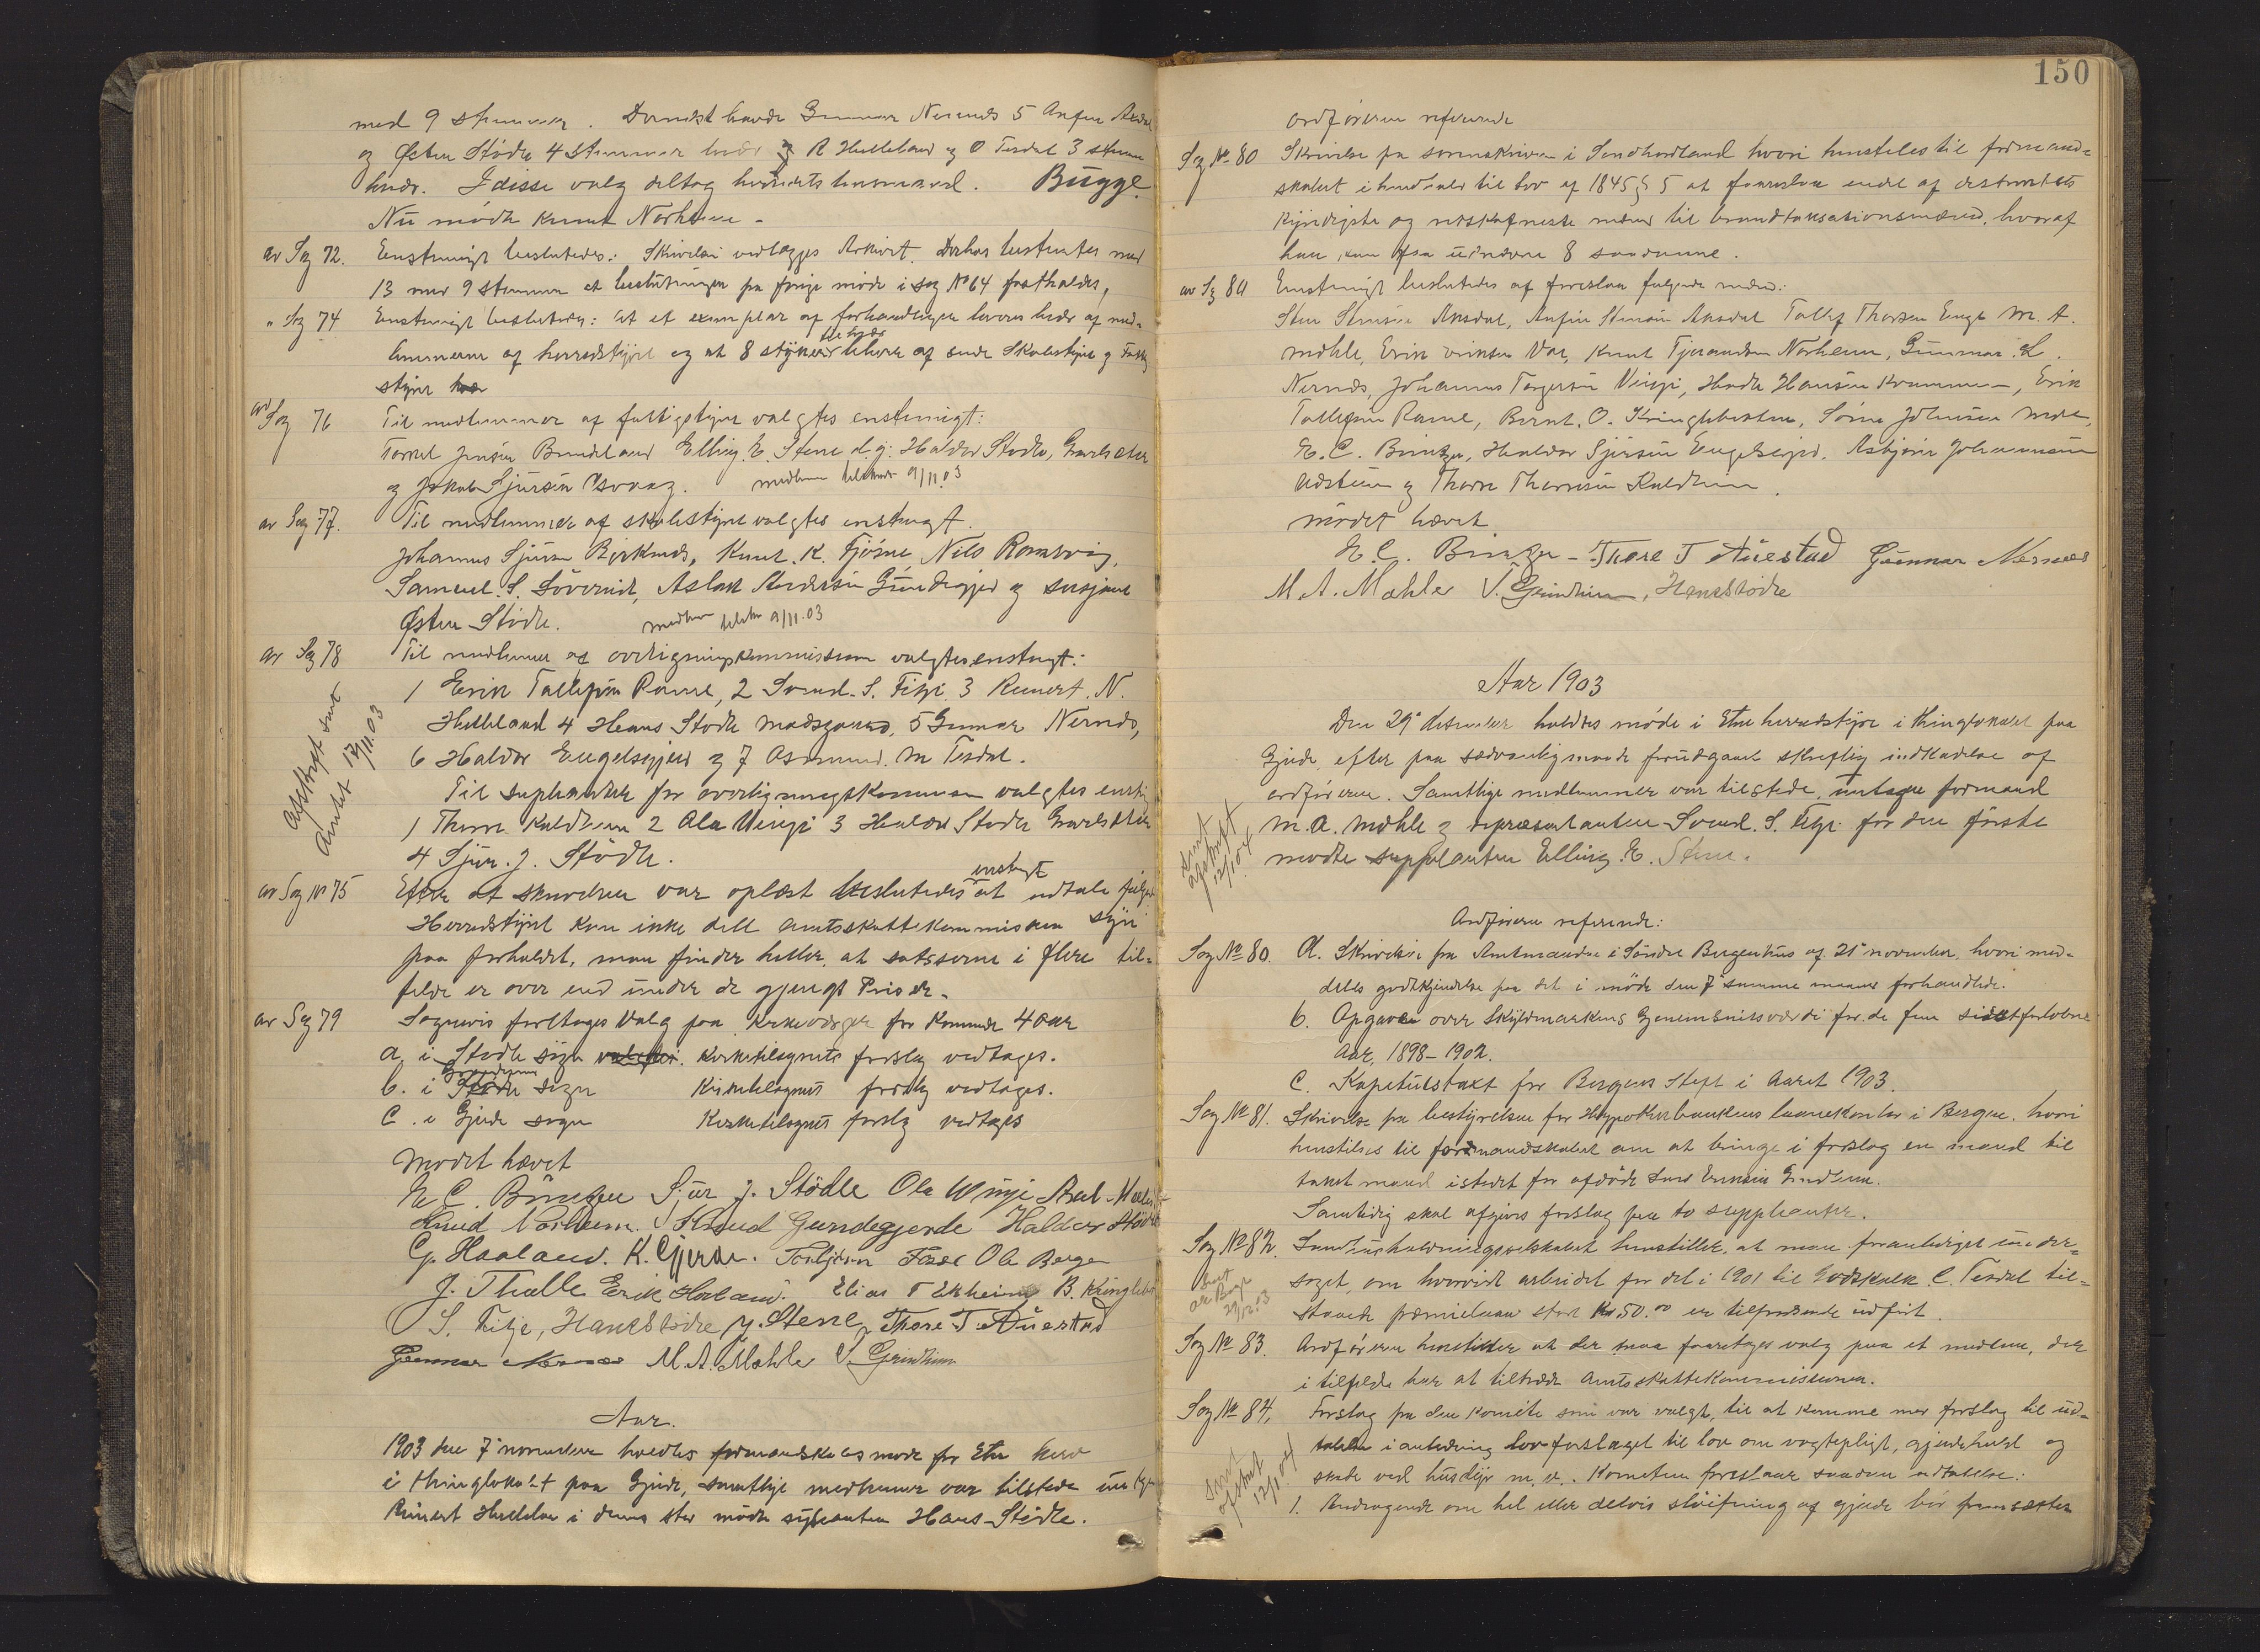 med 9 stemmer. Dernæst havde Gunnar Nernæs 5 Anfin
og Østen Stødle 4 stemmer hver og R Helleland og O Tesdal 3 stemmer
hver. I disse valg deltog Bugge.
Nu mødte Knut Norheim.
av Sag 72. Enstemmigt besluttedes: Skrivelsen vedlægges Arkivet. Derhos besluttes med
13 mod 9 stemmer at beslutningen fra forrige møde i sag No 64 fastholdes,
" Sag 74 Enstemmigt besluttedes: At et exemplar af forhandlingene leveres hver af med-
lemmerne af herredstyret og at 8 stykker leveres af
styret
av Sag 76 Til medlemmer af fattigstyret valgtes enstemigt:
Elling E. Stene d.y. Haldor Stødle, Grarhæter
og Jakob Sjursen medlem 9/11.03
av Sag 77. Til medlemmer af skolestyret valgtes enstemigt.
Johannes Sjursen Birknæs, Knut K. Tjösne, Nils Ramsvig,
Samuel S. Løvereid, Aslak Gundegjerd og
Østen Stødle. medlem 9/11.03
av Sag 78 Til medlemmer af overligningskommissionen valgtes enstemigt:
1 Erik Tollefsen Rame, 2 Svend S. Fitje 3 Reinert N.
Helleland 4 Hans Stødle 5 Gunnar Nernæs,
6 Haldor Engelsgjerd og 7 Asmund M Tesdal.
Afskrift sent
Amtet 12/11.03
Til suppleanter for overligningskommissionen valgtes enstemigt
1 Thore Kaldheim 2 Ola Vinje 3 Haldor Stødle Grarhæter
4 Sjur J. Stødle.
av Sag No 75 Efter at skrivelsen var oplæst besluttedes enstemigt at udtale
Herredstyret kan ikke dele amtsskattekommisionens syn
paa forholdet, man finder heller at satserne i flere til-
fælde er over end under de gjengse Priser.
av Sag 79 Sognevis foretages Valg paa kirkeværger for kommende 4 aar
a, i Stødle sogn Kirketilsynets forslag vedtages.
b. i Grindheims sogn Kirketilsynets forslag vedtages.
C. i Gjerde sogn Kirketilsynets forslag vedtages
Mødet hævet
E C. Börretzen Sjur J. Stödle Ola Winje
Knud Norheim. Knud Gundegjerde Haldor Stødle
G. Haaland. K. Gjerde. Torbjörn Frøse Ole Berge
J. Thalle Erik Haaland. Elias T Ekheim B. Kringleb
S. Fitje, Hans Stødle J. Stene Thore T. Auestad
Gunnar Nernæs M. A. Mæhle S. Grindheim
Aar.
1903 den 7de november holdtes formandskabsmøde for Etne herred
i thinglokalet paa Gjerde, samtlige medlemmer var tilstede undtagen
Reinert Helleland i dennes sted mødte supleanten Hans Stødle.
150
Ordføreren refererede
Sag No 80 Skrivelse fra sorenskriveren i Søndhordland hvori henstilles til formand-
skabet i henhold til lov af 1845 § 5 at foreslaa endel af distriktets
kyndigste og retskafneste mænd til brandtaksationsmænd, hvoraf
han kan 8 saadanne.
av Sag 80 Enstemmigt besluttedes at foreslaa følgende mænd:
Sten Stensen Aksdal, Anfin Stensen Aksdal Tollef Thorsen Enge M. A.
Mæhle, Erik Eriksen Vae, Knut Tjerandsen Norheim, Gunnar L.
Nernæs, Johannes Torgersen Vinje, Hans Hansen, Erik
Tollefsen Rame, Bernt O. Kringlebotten, Søren Johnsen
E. C. Börretzen, Haldor Sjursen Engelsgjerd, Asbjørn Johannesen
Østeim og Thore Thoresen Kaldheim.
mødet hævet
E. C. Börretzen - Thore T Auestad Gunnar Nernæs
M. A. Mæhle S. Grindheim, Hans Stødle
Aar 1903
Den 29de desember holdtes møde i Etne herredstyre i thinglokalet paa
Gjerde, efter paa sædvanlig maade forudgaaet skriftlig indkaldelse af
ordføreren. Samtlige medlemmer var tilstede, undtagen formand
M. A. Mæhle og repræsentanten Svend S. Fitje. for den første
mødte suppleanten Elling E. Stene.
sent
afskrift
12/1.04
Ordføreren refererede:
Sag No 80. A. Skrivelse fra Amtmanden i Søndre Bergenhus af 21de november, hvori med-
deles godkjendelse paa det i møde den 7de samme maaned forhandlede.
b. Opgave over Skyldmarkens Gjennemsnitsværdi for de fem sidstforløbne
Aar, 1898-1902.
C. Kapitelstakst for Bergens Stift i Aaret 1903.
Sag No 81. Skrivelse fra bestyrelsen for Hypothekbankens laanekontor i Bergen, hvori
henstilles til formandskabet om at bringe i forslag en mand til
takstmand istedet for afdøde
Samtidig skal afgives forslag paa to suppleanter.
Sag No 82. Landhusholdningsselskabet henstiller, at man foranlediget under-
søgt, om hvorvidt arbeidet for det i 1901 til Godskalk C. Tesdal til-
staaede præmielaan stort kr. 50.00 er tilfredsende udført.
29/12.03
Sag No 83. Ordføreren henstiller at der maa foretages valg paa et medlem, der
i tilfælde har at tiltræde Amtsskattekommissionen.
Sag No 84, Forslag fra den komite som var valgt, til at komme med forslag til ud-
talelse i anledning lovforslaget til lov om vogtepligt, gjerdehold og
skade ved husdyr m. v.. Komiteen foreslaar saadan udtalelse:
sent
afskrift
12/1.04
1. Andragende om hel eller delvis sløifning af gjerde bør fremsættes